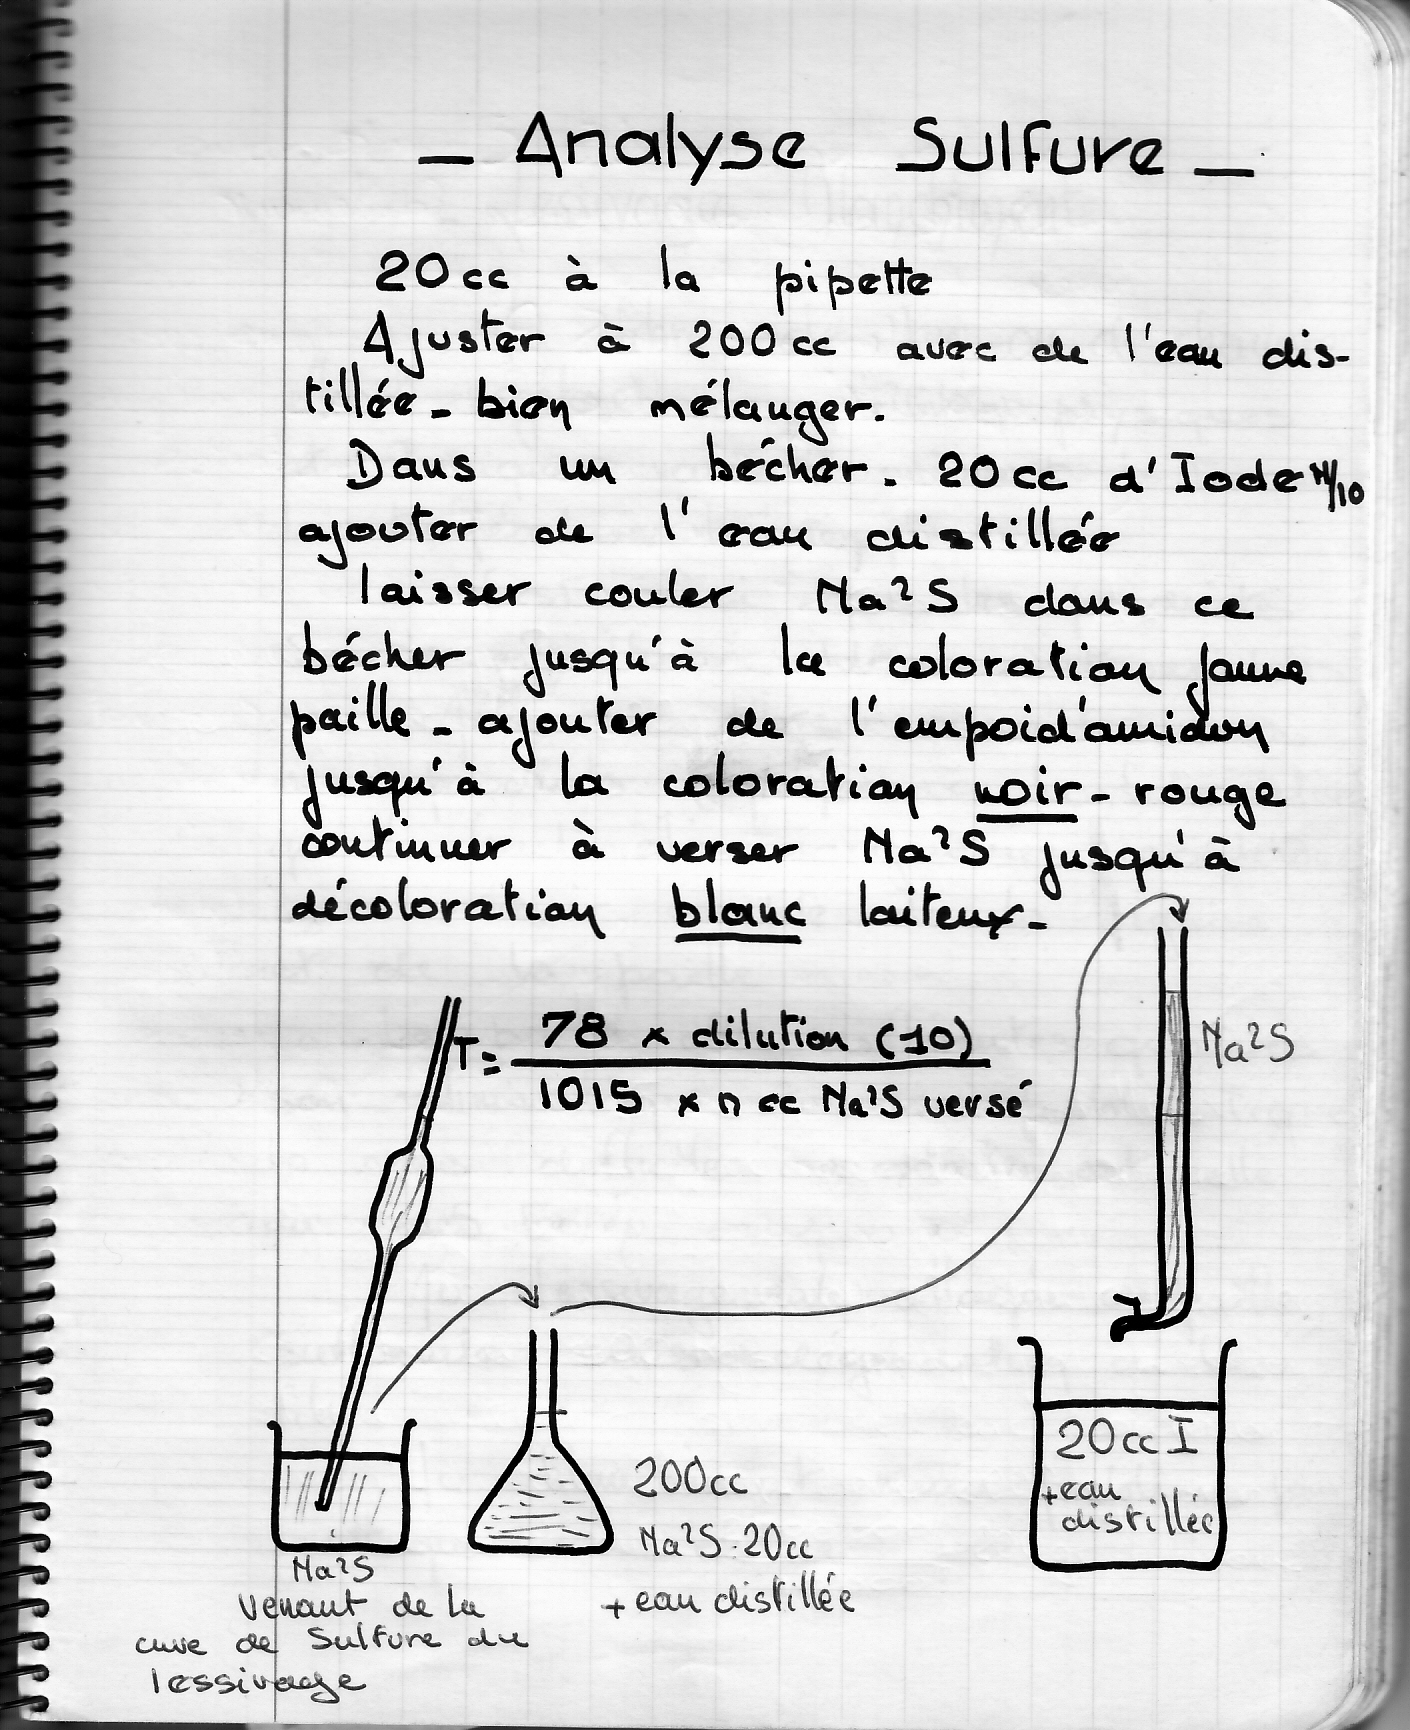 _ Analyse Sulfure _
20cc à la pipette
Ajuster à 200cc avec de l'eau dis-
tillée _ bien mélanger.
Dans un bécher. 20cc d'Iode N/10
ajouter de l'eau distillée
laisser couler Na²S dans ce
bécher jusqu'à la coloration jaune
paille _ ajouter de l'empoid'amidon
jusqu'à la coloration noir - rouge
continuer à verser Na²S jusqu'à
décoloration blanc laiteux _
T= 78 x dilution (10)
1015 x n cc Na²S versé
Na²S
20cc I
+ eau
distillée
200cc
Na²S.20cc
+ eau distillée
Na²S
venant de la
cuve de Sulfure du
lessivage